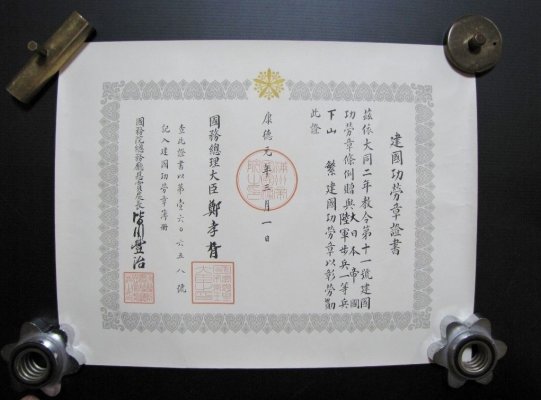 建國功勞章證書
茲依大同二年敎令第十一號建國
功勞章條例贈與大日本帝國
陸軍步兵一等兵
下山 繁建國功勞章以彰勞勳
此證
康德元年三月一日
國務總理大臣 鄭孝胥
查此證書以第壹六〇六五八號
記入建國功勞章簿册
國務院總務廳恩賞處長 皆川豐治